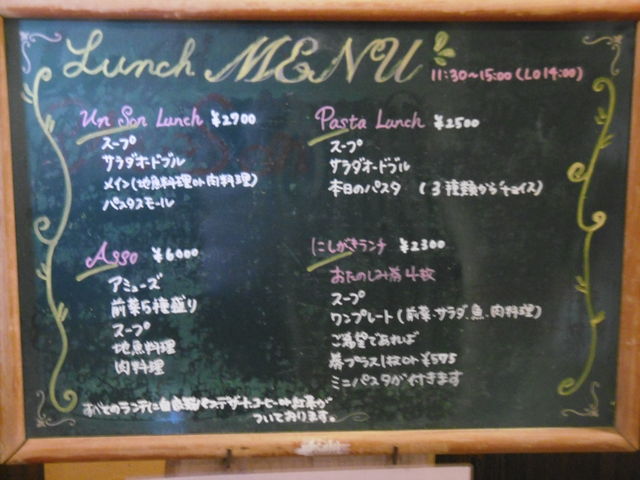 Lunch MENU
11:30〜15:00 (LO 14:00)
Un Son Lunch ¥2900
スープ
サラダオードブル
メイン(地魚料理or肉料理)
パスタスモール
Pasta Lunch ¥2500
スープ
サラダオードブル
本日のパスタ (3種類からチョイス)
Asso ¥6000
アミューズ
前菜5種盛り
スープ
地魚料理
肉料理
にしがきランチ ¥2300
おたのしみ券4枚
スープ
ワンプレート(前菜.サラダ.魚.肉料理)
ご希望であれば
券プラス1枚or¥575
ミニパスタが付きます
すべてのランチに自家製パン.デザート.コーヒーor紅茶が
ついております。